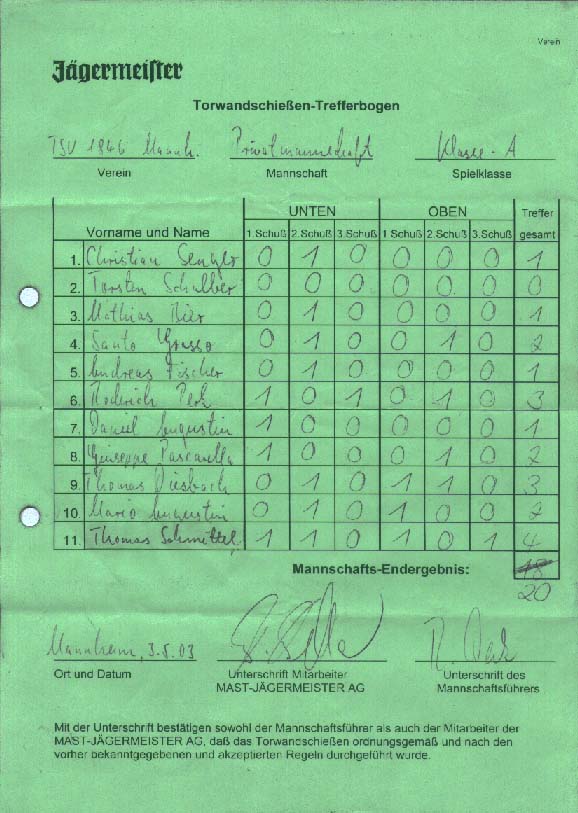 Verein
Jägermeister
Torwandschießen-Trefferbogen
TSV 1846 Mannh. Privatmannschaft Klasse-A
Verein Mannschaft Spielklasse
UNTEN OBEN Treffer
Vorname und Name 1.Schuß 2.Schuß 3.Schuß 1.Schuß 2.Schuß 3.Schuß gesamt
1. Christian 0 1 0 0 0 0 1
2. Torsten 0 0 0 0 0 0 0
3. Mathias Bier 0 1 0 0 0 0 1
4. Santo Grasso 0 1 0 0 1 0 2
5. Andreas Fischer 0 1 0 0 0 0 1
6. Roderich 1 0 1 0 1 0 3
7. Daniel Augustin 1 0 0 0 0 0 1
8. Guiseppe Pascarella 1 0 0 0 1 0 2
9. Thomas Diesbach 0 1 0 1 1 0 3
10. Mario Augustin 0 1 0 1 0 0 2
11. Thomas Schmittel 1 1 0 1 0 1 4
Mannschafts-Endergebnis: 18
20
Mannheim, 3.5.03
Ort und Datum Unterschrift Mitarbeiter Unterschrift des
MAST-JÄGERMEISTER AG Mannschaftsführers
Mit der Unterschrift bestätigen sowohl der Mannschaftsführer als auch der Mitarbeiter der
MAST-JÄGERMEISTER AG, daß das Torwandschießen ordnungsgemäß und nach den
vorher bekanntgegebenen und akzeptierten Regeln durchgeführt wurde.